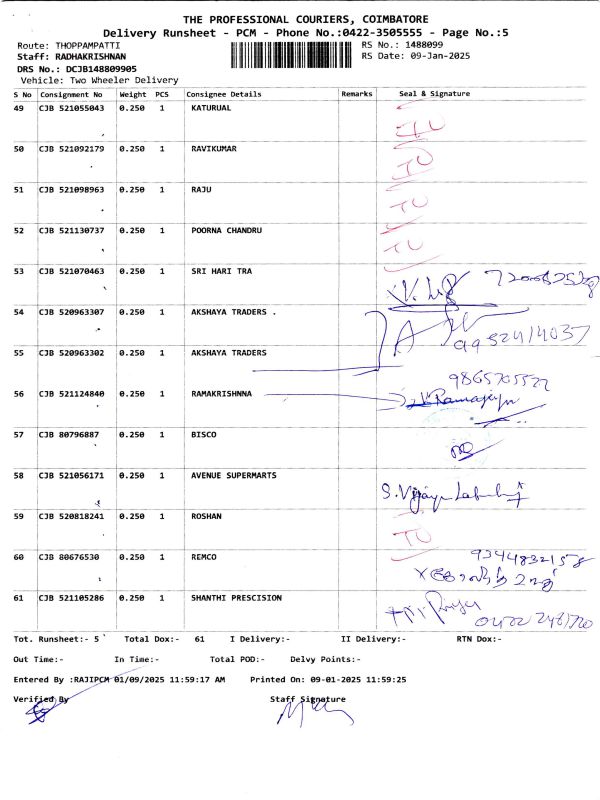 THE PROFESSIONAL COURIERS, COIMBATORE
Delivery Runsheet - PCM - Phone No.:0422-3505555 - Page No.:5
Route: THOPPAMPATTI RS No.: 1488099
Staff: RADHAKRISHNAN RS Date: 09-Jan-2025
DRS No.: DCJB148809905
Vehicle: Two Wheeler Delivery
S No Consignment No Weight PCS Consignee Details Remarks Seal & Signature
49 CJB 521055043 0.250 1 KATURUAL TU
50 CJB 521092179 0.250 1 RAVIKUMAR TU
51 CJB 521098963 0.250 1 RAJU TU
52 CJB 521130737 0.250 1 POORNA CHANDRU TU
53 CJB 521070463 0.250 1 SRI HARI TRA
54 CJB 520963307 0.250 1 AKSHAYA TRADERS .
9952414037
55 CJB 520963302 0.250 1 AKSHAYA TRADERS
56 CJB 521124840 0.250 1 RAMAKRISHNNA
57 CJB 80796887 0.250 1 BISCO
58 CJB 521056171 0.250 1 AVENUE SUPERMARTS
59 CJB 520818241 0.250 1 ROSHAN TU
60 CJB 80676530 0.250 1 REMCO 9344832158
61 CJB 521105286 0.250 1 SHANTHI PRESCISION
Tot. Runsheet:- 5 Total Dox:- 61 I Delivery:- II Delivery:- RTN Dox:-
Out Time:- In Time:- Total POD:- Delvy Points:-
Entered By :RAJIPCM 01/09/2025 11:59:17 AM Printed On: 09-01-2025 11:59:25
Verified By Staff Signature